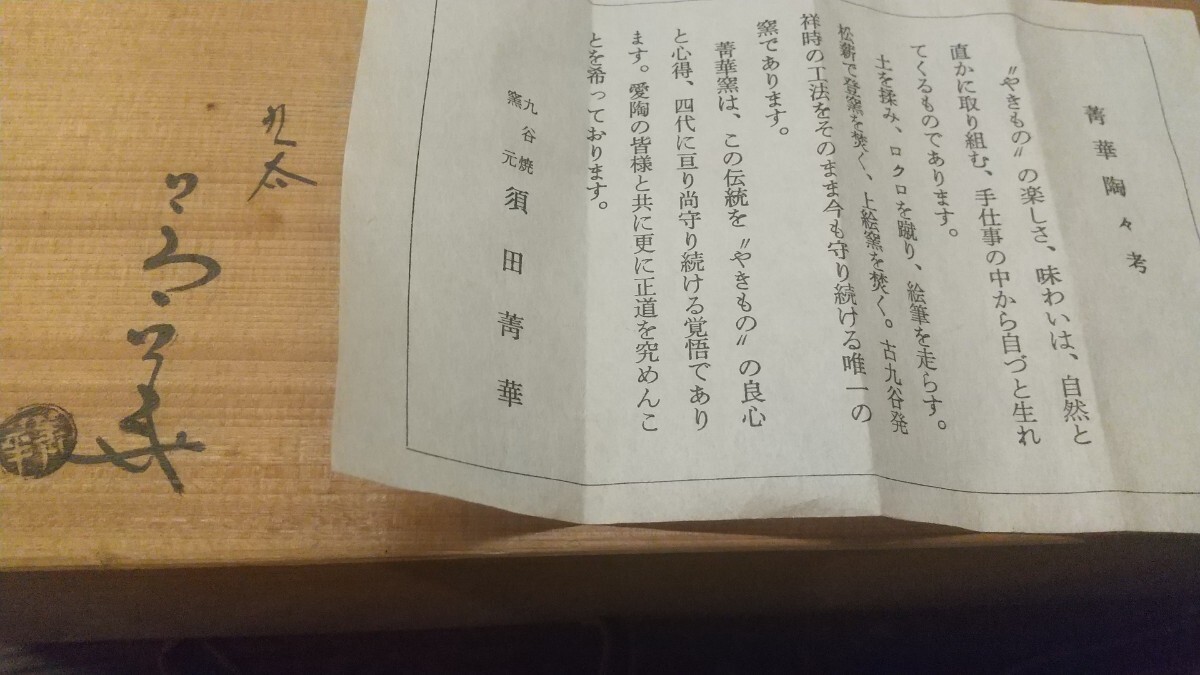 菁華陶々考
〝やきもの〟の楽しさ、味わいは、自然と
直かに取り組む、手仕事の中から自づと生れ
てくるものであります。
土を揉み、ロクロを蹴り、絵筆を走らす。
松薪で登窯を焚く、上絵窯を焚く。古九谷発
祥時の工法をそのまま今も守り続ける唯一の
窯であります。
菁華窯は、この伝統を〝やきもの〟の良心
と心得、四代に亘り尚守り続ける覚悟であり
ます。愛陶の皆様と共に更に正道を究めんこ
とを希っております。
九谷焼
窯元
須田菁華
九谷